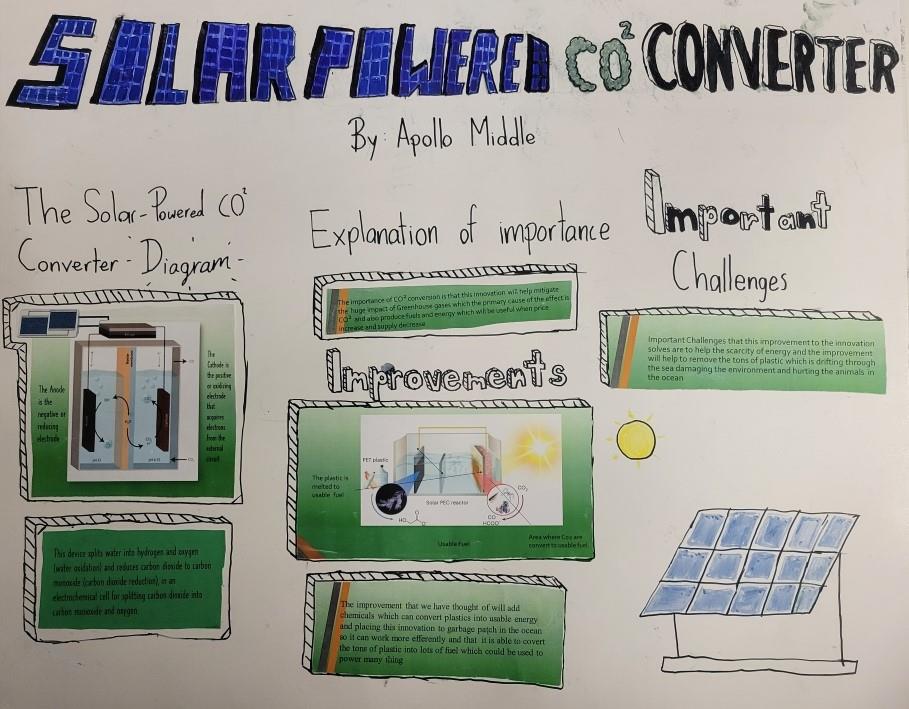 SOLAR POWERED CO² CONVERTER
By: Apollo Middle
The Solar-Powered CO²
Converter - Diagram -
The Anode
is the
negative or
reducing
electrode
The
Cathode is
the positive
or oxidizing
electrode
that
acquires
electrons
from the
external
circuit
This device splits water into hydrogen and oxygen
(water oxidation) and reduces carbon dioxide to carbon
monoxide (carbon dioxide reduction), in an
electrochemical cell for splitting carbon dioxide into
carbon monoxide and oxygen.
Explanation of importance
The importance of CO² conversion is that this innovation will help mitigate
the huge impact of Greenhouse gases which the primary cause of the effect is
CO² and also produce fuels and energy which will be useful when price
increase and supply decrease
Improvements
The plastic is
melted to
usable fuel
PET plastic
Solar PEC reactor
CO₂
CO
HCOO⁻
Usable fuel
Area where Co2 are
convert to usable fuel
The improvement that we have thought of will add
chemicals which can convert plastics into usable energy
and placing this innovation to garbage patch in the ocean
so it can work more efferently and that it is able to covert
the tons of plastic into lots of fuel which could be used to
power many thing
Important
Challenges
Important Challenges that this improvement to the innovation
solves are to help the scarcity of energy and the improvement
will help to remove the tons of plastic which is drifting through
the sea damaging the environment and hurting the animals in
the ocean